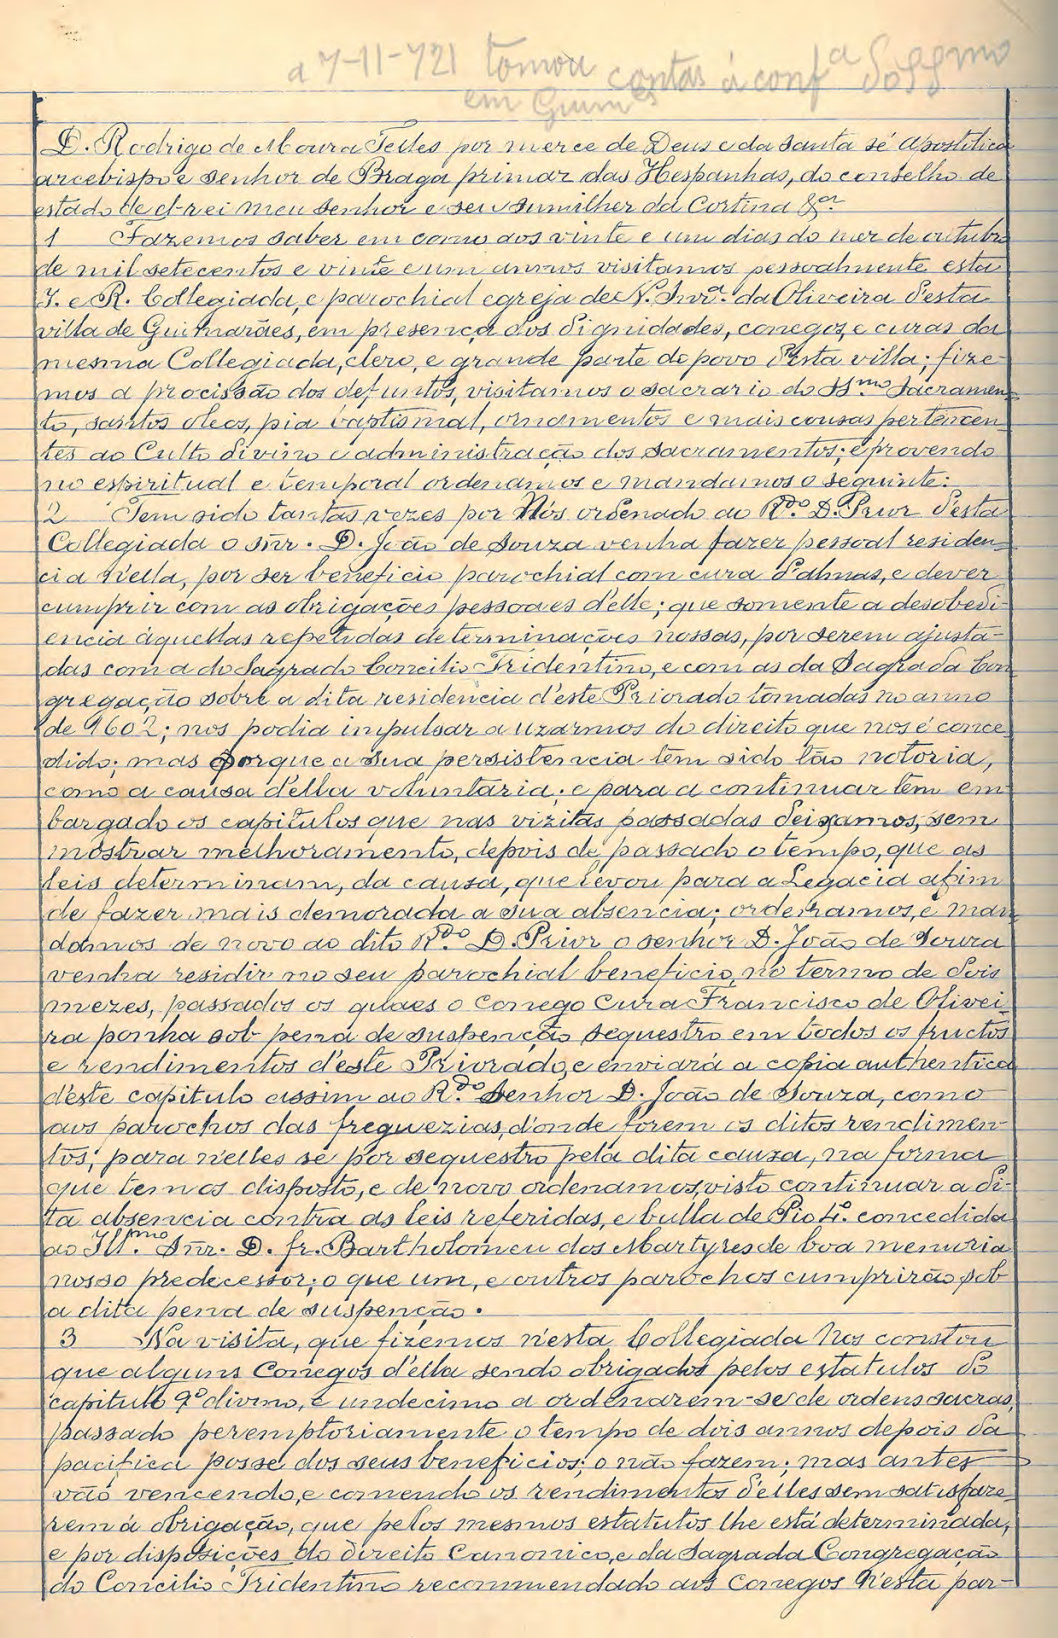 a 7-11-721 tomou contas á confª do SSmo
em Guimes
D. Rodrigo de Moura Telles por merce de Deus e da santa sé apostolica
arcebispo e senhor de Braga primaz das Hespanhas, do conselho de
estado de el-rei meu senhor e seu sumilher da Cortina &ª.
1 Fazemos saber em como aos vinte e um dias do mez de outubro
de mil setecentos e vinte e um annos visitamos pessoalmente esta
I. e R. Collegiada, e parochial egreja de N. Snrª. da Oliveira d'esta
villa de Guimarães, em presença dos dignidades, conegos, e curas da
mesma Collegiada, clero, e grande parte do povo d'esta villa; fize-
mos a procissão dos defuntos, visitamos o sacrario do SS.mo Sacramen-
to, santos oleos, pia baptismal, ornamentos e mais cousas pertencen-
tes ao Culto divino e administração dos sacramentos; e provendo
no espiritual e temporal ordenamos e mandamos o seguinte:
2 Tem sido tantas vezes por Nós ordenado ao R.do D. Prior d'esta
Collegiada o Snr. D. João de Souza venha fazer pessoal residen-
cia n'ella, por ser beneficio parochial com cura d'almas, e dever
cumprir com as obrigações pessoaes d'elle; que somente a desobedi-
encia áquellas repetidas determinações nossas, por serem ajusta-
das com a do Sagrado Concilio Tridentino, e com as da Sagrada Con
gregação sobre a dita residencia d'este Priorado tomadas no anno
de 1602; nos podia impulsar a uzarmos do direito que nos é conce
dido; mas porque a sua persistencia tem sido tão notoria,
como a causa d'ella voluntaria; e para a continuar tem em-
bargado os capitulos que nas vizitas passadas deixamos, sem
mostrar melhoramento, depois de passado o tempo, que as
leis determinam, da causa, que levou para a Legacia afim
de fazer mais demorada a sua absencia; ordenamos, e man
damos de novo ao dito R.do D. Prior o senhor D. João de Souza
venha residir no seu parochial beneficio, no termo de dois
mezes, passados os quaes o conego Cura Francisco de Olivei
ra ponha sob pena de suspenção sequestro em todos os fructos
e rendimentos d'este Priorado, e enviará a copia authentica
d'este capitulo assim ao R.do Senhor D. João de Souza, como
aos parochos das freguezias, d'onde forem os ditos rendimen-
tos; para n'elles se pôr sequestro pela dita cauza, na forma
que temos disposto, e de novo ordenamos, visto continuar a di-
ta absencia contra as leis referidas, e bulla de Pio 4º. concedida
ao Ill.mo Snr. D. fr. Bartholomeu dos Martyres de boa memoria
nosso predecessor; o que um, e outros parochos cumprirão sob
a dita pena de suspenção.
3 Na visita, que fizemos n'esta Collegiada Nos constou
que alguns Conegos d'ella sendo obrigados pelos estatutos do
capitulo 9º divino, e undecimo a ordenarem-se de ordens sacras,
passado peremptoriamente o tempo de dois annos depois da
pacifica posse dos seus beneficios; o não fazem; mas antes
vão vencendo, e comendo os rendimentos d'elles sem satisfaze-
rem á obrigação, que pelos mesmos estatutos lhe está determinada,
e por disposições do direito Canonico, e da Sagrada Congregação
do Concilio Tridentino recommendado aos Conegos n'esta par-